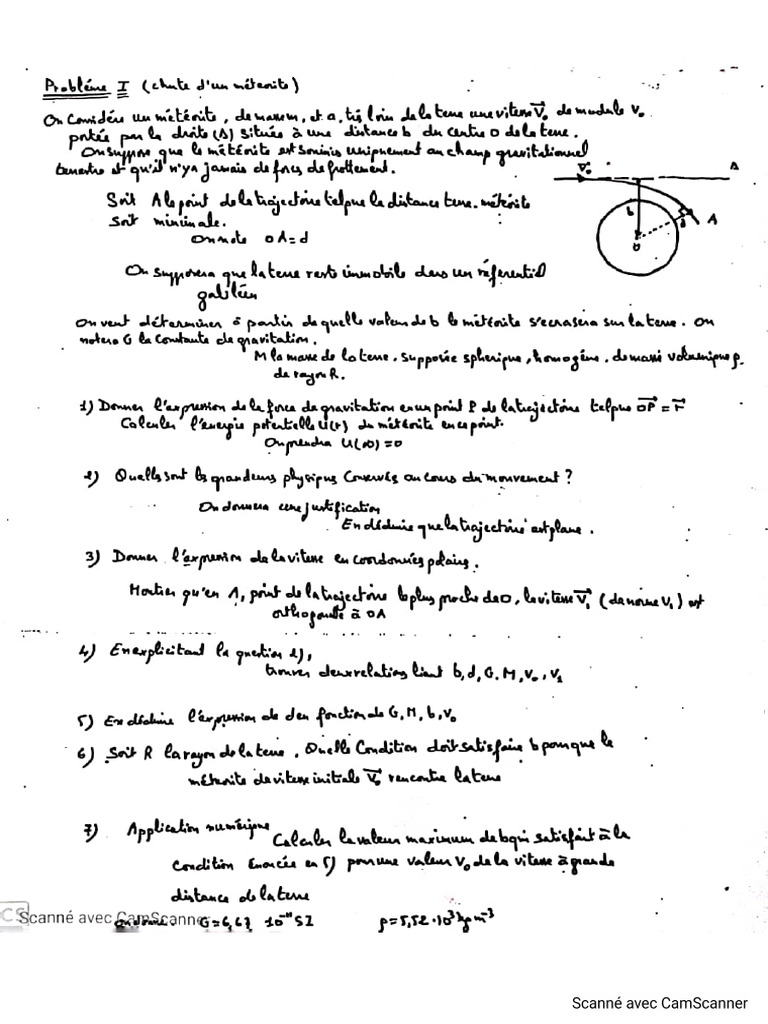 Problème I (chute d'un météorite)
On considère un météorite, de masse m, et a, très loin de la terre une vitesse V₀ de module v₀
portée par la droite (Δ) située à une distance b du centre O de la terre.
On suppose que le météorite est soumis uniquement au champ gravitationnel
terrestre et qu'il n'y a jamais de forces de frottement.
V₀ Δ
Soit A le point de la trajectoire tel que la distance terre-météorite
soit minimale.
b d A
O
On note OA = d
On supposera que la terre reste immobile dans un référentiel
galiléen
On veut déterminer à partir de quelle valeur de b le météorite s'écrasera sur la terre. On
notera G la constante de gravitation.
M la masse de la terre. supposée sphérique, homogène. de masse volumique ρ
de rayon R.
1) Donner l'expression de la force de gravitation en un point P de la trajectoire tel que OP = r
Calculer l'énergie potentielle U(r) du météorite en ce point.
On prendra U(∞) = 0
2) Quelles sont les grandeurs physiques conservées au cours du mouvement ?
On donnera une justification
En déduire que la trajectoire est plane.
3) Donner l'expression de la vitesse en coordonnées polaires.
Montrer qu'en A, point de la trajectoire le plus proche de O, la vitesse V₁ (de norme V₁) est
orthogonale à OA
4) En explicitant la question 2),
trouver deux relations liant b, d, G, M, v₀, v₁
5) En déduire l'expression de d en fonction de G, M, b, v₀
6) Soit R le rayon de la terre. Quelle condition doit satisfaire b pour que le
météorite de vitesse initiale V₀ rencontre la terre
7) Application numérique
Calculer la valeur maximum de b qui satisfait à la
condition énoncée en 5) pour une valeur V₀ de la vitesse à grande
distance de la terre
G = 6,67 10⁻¹¹ SI ρ = 5,52·10³ kg m⁻³
CS Scanné avec CamScanner
Scanné avec CamScanner